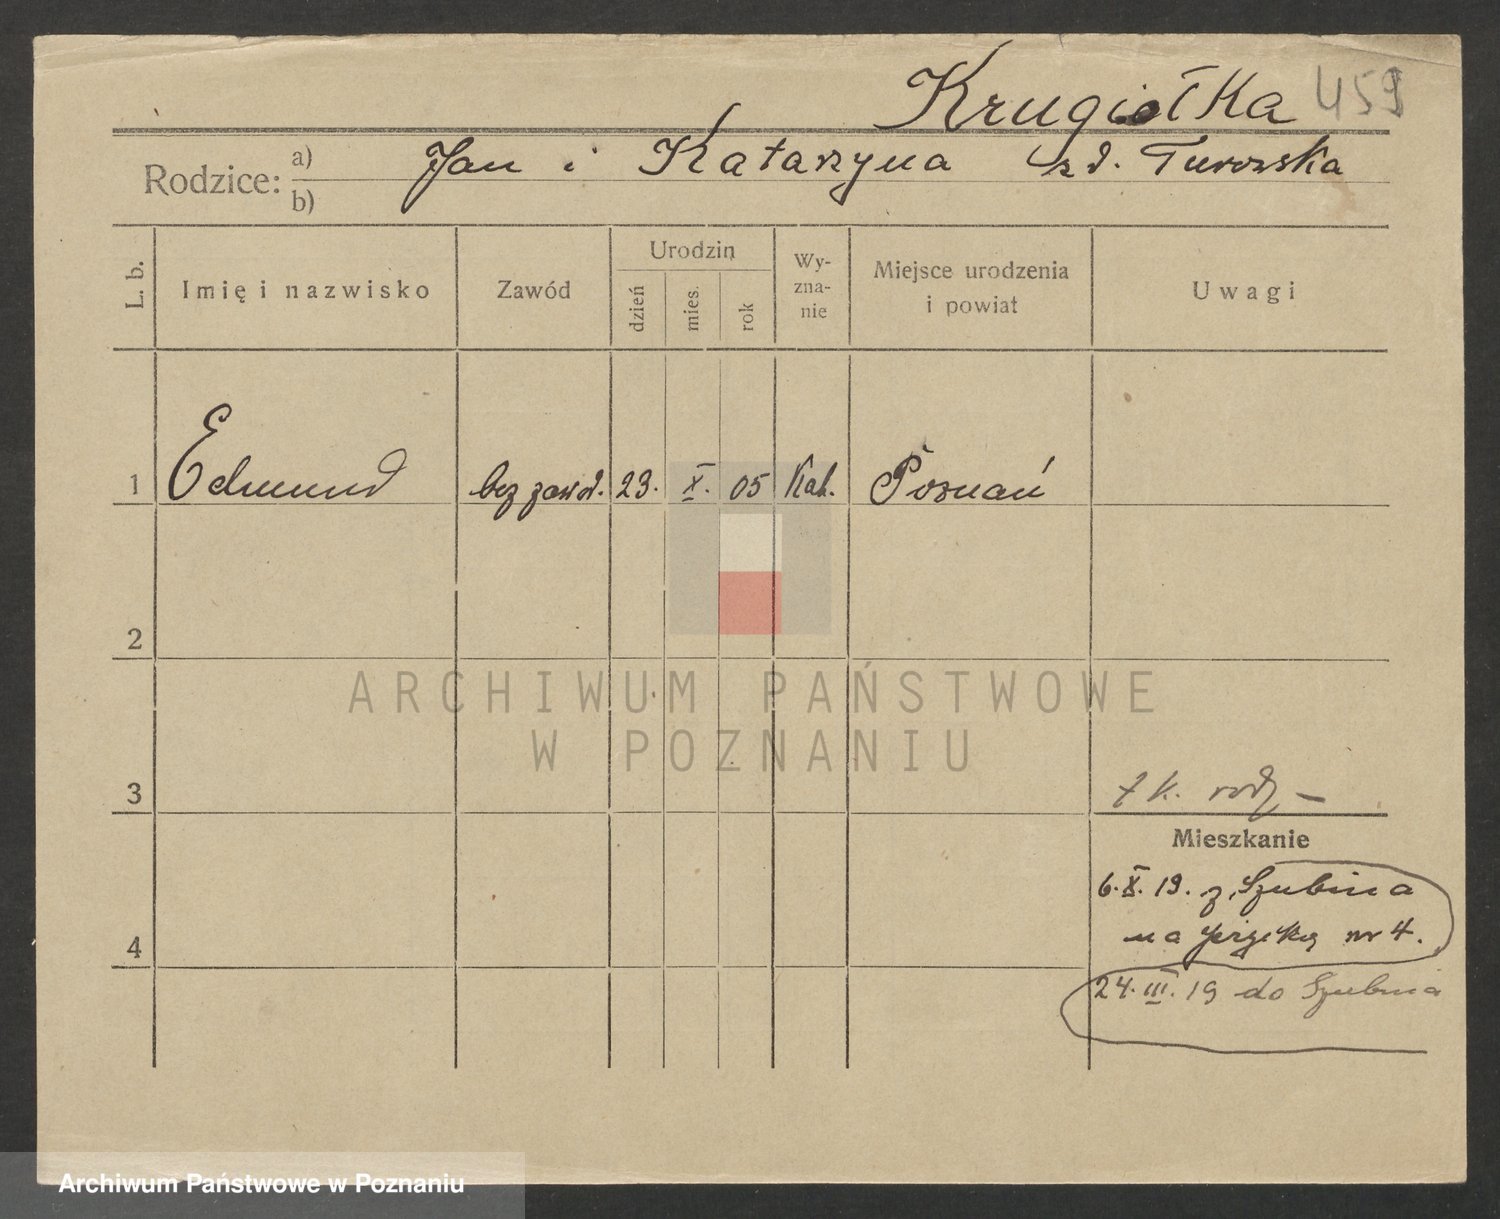 Krugiołka 459
Rodzice: a) b)
Jan i Katarzyna zd. Turowska
L. b.
Imię i nazwisko
Zawód
Urodzin
dzień
mies.
rok
Wy-
zna-
nie
Miejsce urodzenia
i powiat
Uwagi
1 Edmund bez zawod. 23. X. 05 Kat. Poznań
2
ARCHIWUM PAŃSTWOWE
W POZNANIU
3
k. rodz –
Mieszkanie
6.X.19. z Szubina
na nr 4.
4
24.III.19 do Szubina
Archiwum Państwowe w Poznaniu